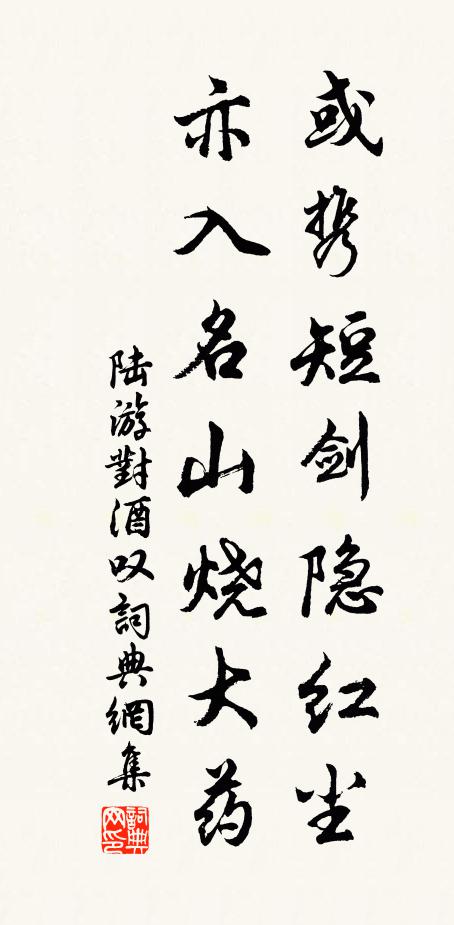 或携短剑隐红尘
亦入名山烧大药
陆游對酒叹詞典網集
詞典网印